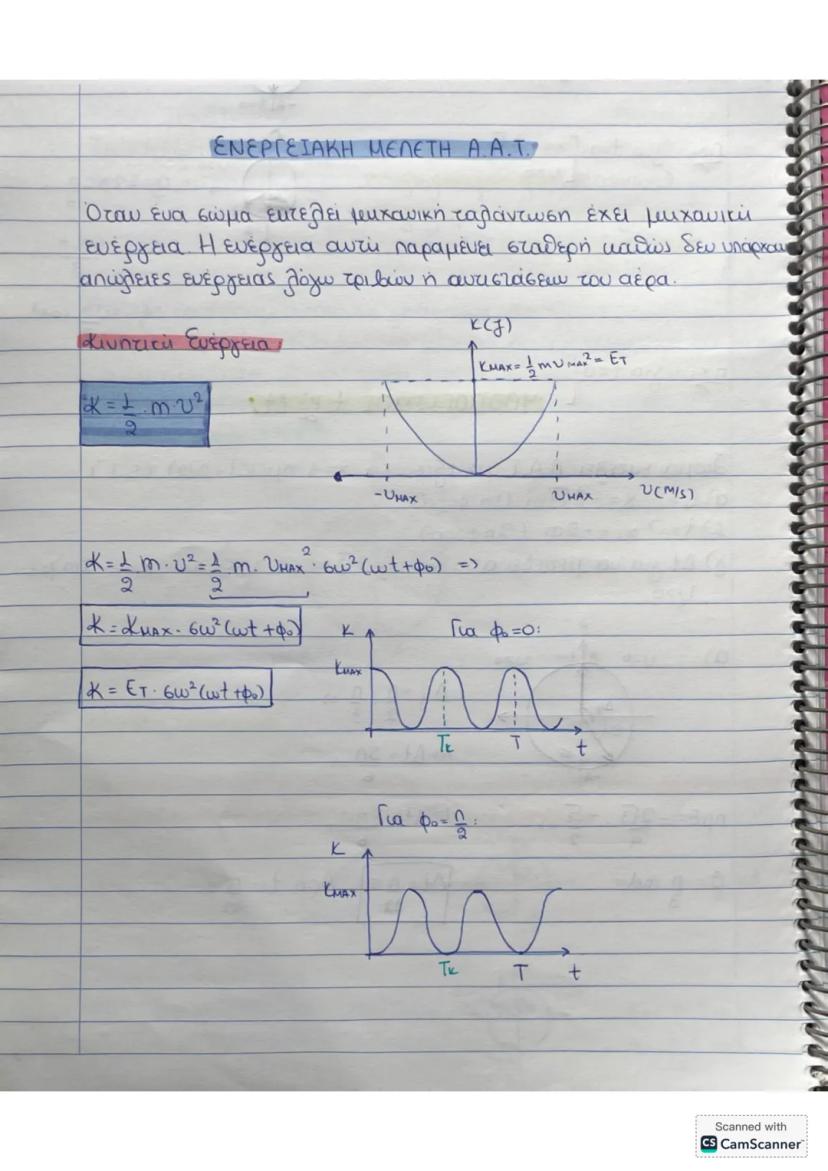 ΕΝΕΡΓΕΙΑΚΗ ΜΕΛΕΤΗ Α.Α.Τ.
Όταν ένα σώμα εκτελεί μηχανική ταλάντωση έχει μηχανική
ενέργεια. Η ενέργεια αυτή παραμένει σταθερή καθώς δεν υπάρχουν
απώλειες ενέργειας λόγω τριβών ή αντιστάσεων του αέρα.
Κινητική Ενέργεια
K(J)
KMAX = 1/2 m υMAX² = ET
K = 1/2 · m · υ²
-υMAX υMAX υ(m/s)
K = 1/2 m · υ² = 1/2 m · υMAX² · συν²(ωt+φ₀) =>
K = KMAX · συν²(ωt+φ₀)
K Για φ₀=0:
KMAX
K = ET · συν²(ωt+φ₀)
TK T t
Για φ₀ = π/2:
K
KMAX
TK T t
Scanned with
CS CamScanner